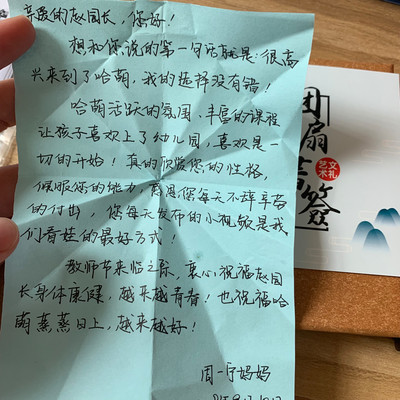 辛勤的赵园长,您好!
想和你说的第一句话就是:很高
兴来到了哈萌,我的选择没有错!
哈萌活跃的氛围、丰富的课程
让孩子喜欢上了幼儿园,喜欢是一
切的开始!真的欣赏您的性格,
佩服您的能力,感恩您每天不辞辛苦
的付出,您每天发布的小视频是我
们看娃的最好方式!
教师节来临之际,衷心祝福赵园
长身体康健,越来越青春!也祝福哈
萌蒸蒸日上,越来越好!
周一宁妈妈
团扇书签
文礼
艺术